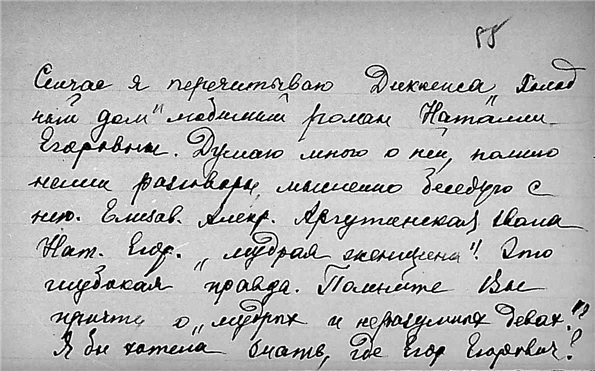 88
Сейчас я перечитываю Диккенса „Холод
ный дом" любимый роман Наталии
Егоровны. Думаю много о ней, помню
наши разговоры, мысленно беседую с
нею. Елизав. Алекр. Аргутинская звала
Нат. Егор. „мудрая женщина"! Это
глубокая правда. Помните Вы
притчу о „мудрых и неразумных девах"?
Я бы хотела знать, где Егор Егорович?